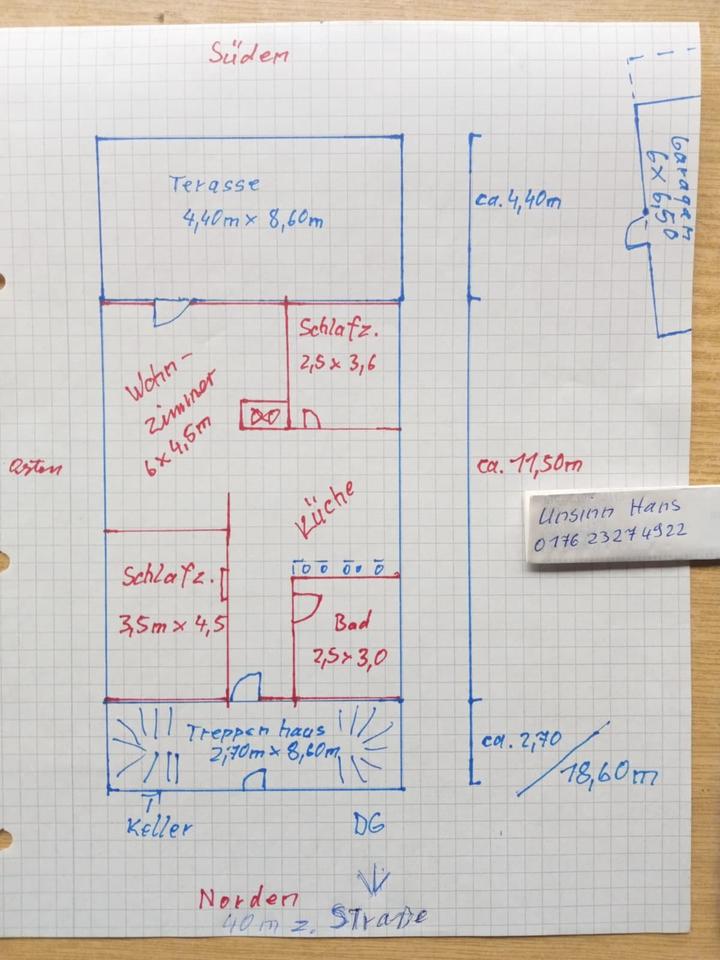 Süden
Terasse
4,40m x 8,60m
ca. 4,40m
Garagen
6 x 6,50
Schlafz.
2,5 x 3,6
Wohn-
zimmer
6 x 4,5m
ca. 11,50m
Küche
Unsinn Hans
0176 23274922
Schlafz.
3,5m x 4,5
Bad
2,5 x 3,0
Treppenhaus
2,70m x 8,60m
ca. 2,70
18,60m
Keller
DG
Norden
40 m z. Straße